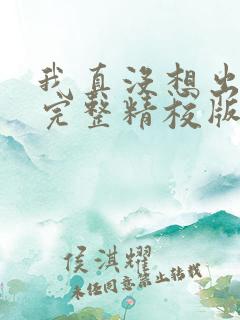 我真没想出
完整精校版
侯淇耀
未经同意禁止转载